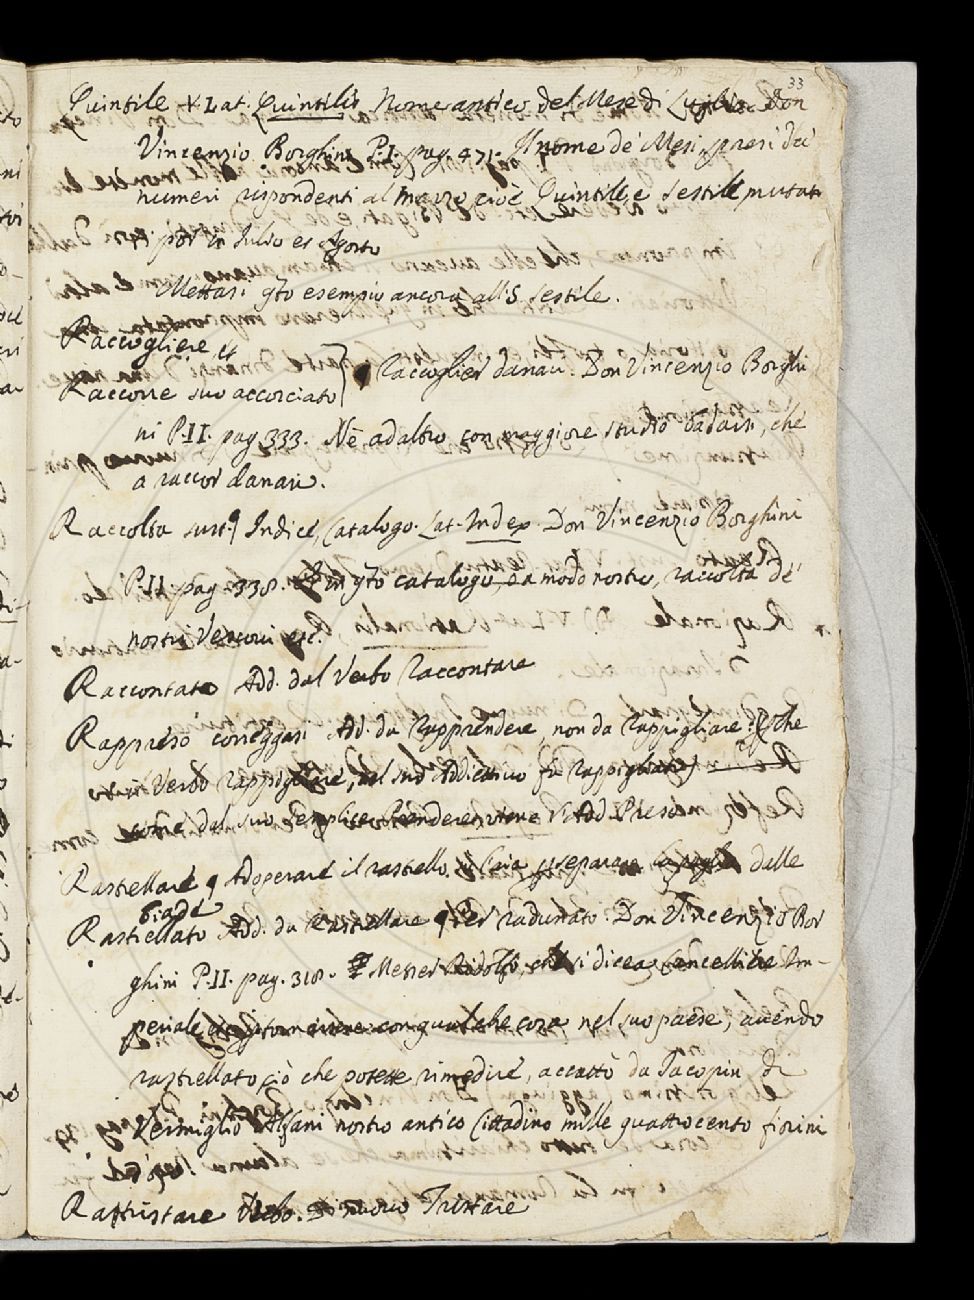 33
Quintile V. Lat. Quintilis Nome antico del Mese di Luglio. Don
Vincenzio Borghini P.I. pag. 471. Il nome de' Mesi presi dai
numeri rispondenti al marzo cioè Quintile, e Sestile mutati
poi in Julio et Agosto
Mettasi qto esempio ancora all' S. Sestile.
Raccogliere, et
Raccorre suo accorciato } ¶ Raccoglier danari. Don Vincenzio Borghi
ni P.II. pag. 333. Nè ad altro con maggiore studio badasti, che
a raccor danari.
Raccolta sust. ¶ Indice, Catalogo. Lat. Index. Don Vincenzio Borghini
P.II. pag. 338. in qto catalogo, o a modo nostro, raccolta de'
nostri Vescovi etc.
Raccontato Add. dal Verbo Raccontare
Rappreso correggasi Ad. da Rapprendere, non da rappigliare: che
il Verbo rappigliare, nel suo Addiettivo fa rappigliato,
come dal suo semplice Prendere, viene l'Add. Preso
Rastellare ¶ Adoperare il rastello, separare la paglia dalle
biade
Rastellato Add. da Rastellare ¶ Per radunato: Don Vincenzio Bor
ghini P.II. pag. 318. Messer Ridolfo, che si dicea Cancelliere Im-
periale, per ritornarsene con qualche cosa nel suo paese, avendo
rastrellato ciò che potette rimedire, accattò da Jacopin di
Vermiglio Alfani nostro antico Cittadino mille quattrocento fiorini
Rattristare Verbo. Di nuovo Tristare